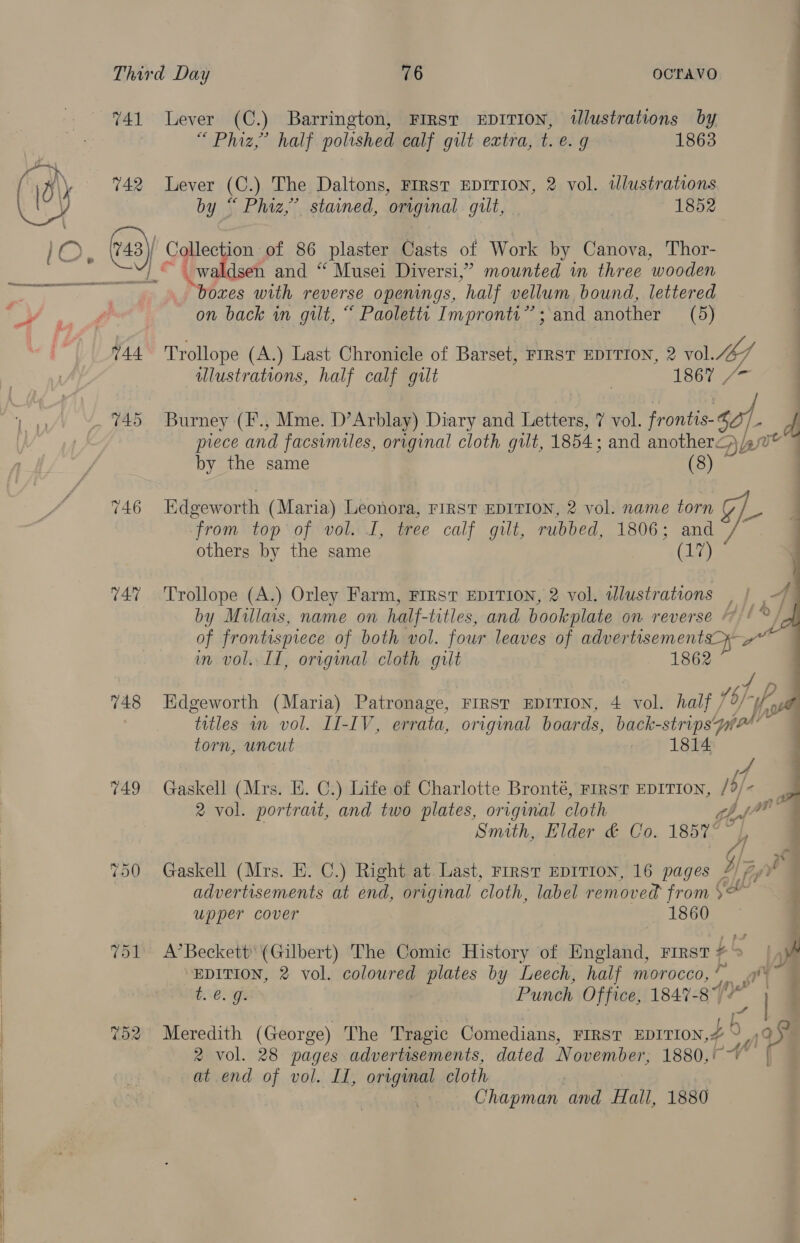 Third Day 76 OCTAVO
741 Lever (C.) Barrington, FIRST EDITION, illustrations by
“Phiz,” half polished calf gilt extra, t. e. g 1863
742 Lever (C.) The Daltons, FIRST EDITION, 2 vol. illustrations
by “Phiz,” stained, original gilt, 1852
10. 743 Collection of 86 plaster Casts of Work by Canova, Thor-
waldsen and “Musei Diversi,” mounted in three wooden
boxes with reverse openings, half vellum bound, lettered
on back in gilt, “Paoletti Impronti”; and another (5)
744 Trollope (A.) Last Chronicle of Barset, FIRST EDITION, 2 vol.
illustrations, half calf gilt 1867
745 Burney (F., Mme. D’Arblay) Diary and Letters, 7 vol. frontis-
piece and facsimiles, original cloth gilt, 1854; and another
by the same (8)
746 Edgeworth (Maria) Leonora, FIRST EDITION, 2 vol. name torn
from top of vol. I, tree calf gilt, rubbed, 1806; and
others by the same (17)
747 Trollope (A.) Orley Farm, FIRST EDITION, 2 vol. illustrations
by Millais, name on half-titles, and bookplate on reverse
of frontispiece of both vol. four leaves of advertisements
in vol. II, original cloth gilt 1862
748 Edgeworth (Maria) Patronage, FIRST EDITION, 4 vol. half
titles in vol. II-IV, errata, original boards, back-strips
torn, uncut 1814
749 Gaskell (Mrs. E. C.) Life of Charlotte Brontë, FIRST EDITION,
2 vol. portrait, and two plates, original cloth
Smith, Elder & Co. 1857
750 Gaskell (Mrs. E. C.) Right at Last, FIRST EDITION, 16 pages
advertisements at end, original cloth, label removed from
upper cover 1860
751 A’Beckett (Gilbert) The Comic History of England, FIRST
EDITION, 2 vol. coloured plates by Leech, half morocco,
t. e. g. Punch Office, 1847-8
752 Meredith (George) The Tragic Comedians, FIRST EDITION,
2 vol. 28 pages advertisements, dated November, 1880,
at end of vol. II, original cloth
Chapman and Hall, 1880